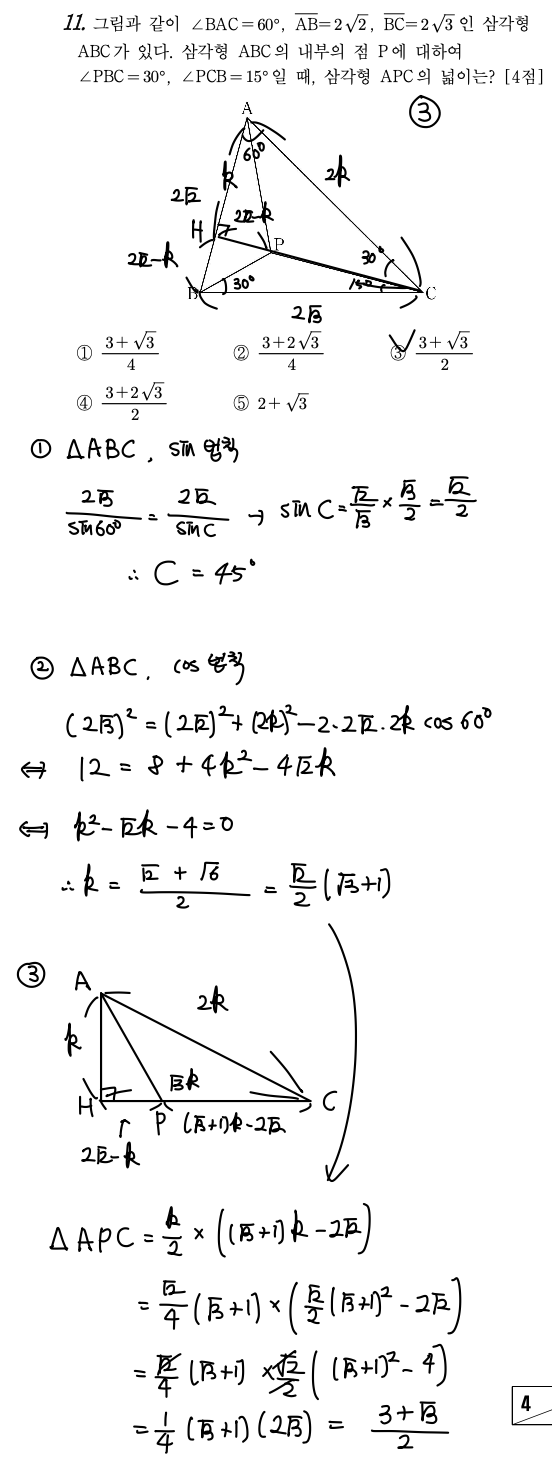 11. 그림과 같이 ∠BAC=60°, AB=2√2, BC=2√3 인 삼각형
ABC가 있다. 삼각형 ABC의 내부의 점 P에 대하여
∠PBC=30°, ∠PCB=15°일 때, 삼각형 APC의 넓이는? [4점]
③
A
60°
k
2k
2√2
H
2√2-k
P
2√2-k
30°
B
30°
15°
C
2√3
① (3+√3)/4
② (3+2√3)/4
③ (3+√3)/2
④ (3+2√3)/2
⑤ 2+√3
① △ABC, sin 법칙
2√3/sin60° = 2√2/sinC → sin C = √2/√3 × √3/2 = √2/2
∴ C = 45°
② △ABC, cos 법칙
(2√3)² = (2√2)² + (2k)² - 2·2√2·2k cos 60°
⇔ 12 = 8 + 4k² - 4√2k
⇔ k² - √2k - 4 = 0
∴ k = (√2 + √6)/2 = √2/2 (√3+1)
③
A
2k
k
√3k
H
P
(√3+1)k-2√2
C
↑
2√2-k
△APC = k/2 × ((√3+1)k - 2√2)
= √2/4 (√3+1) × (√2/2 (√3+1)² - 2√2)
= √2/4 (√3+1) × √2/2 ((√3+1)² - 4)
= 1/4 (√3+1)(2√3) = (3+√3)/2
4